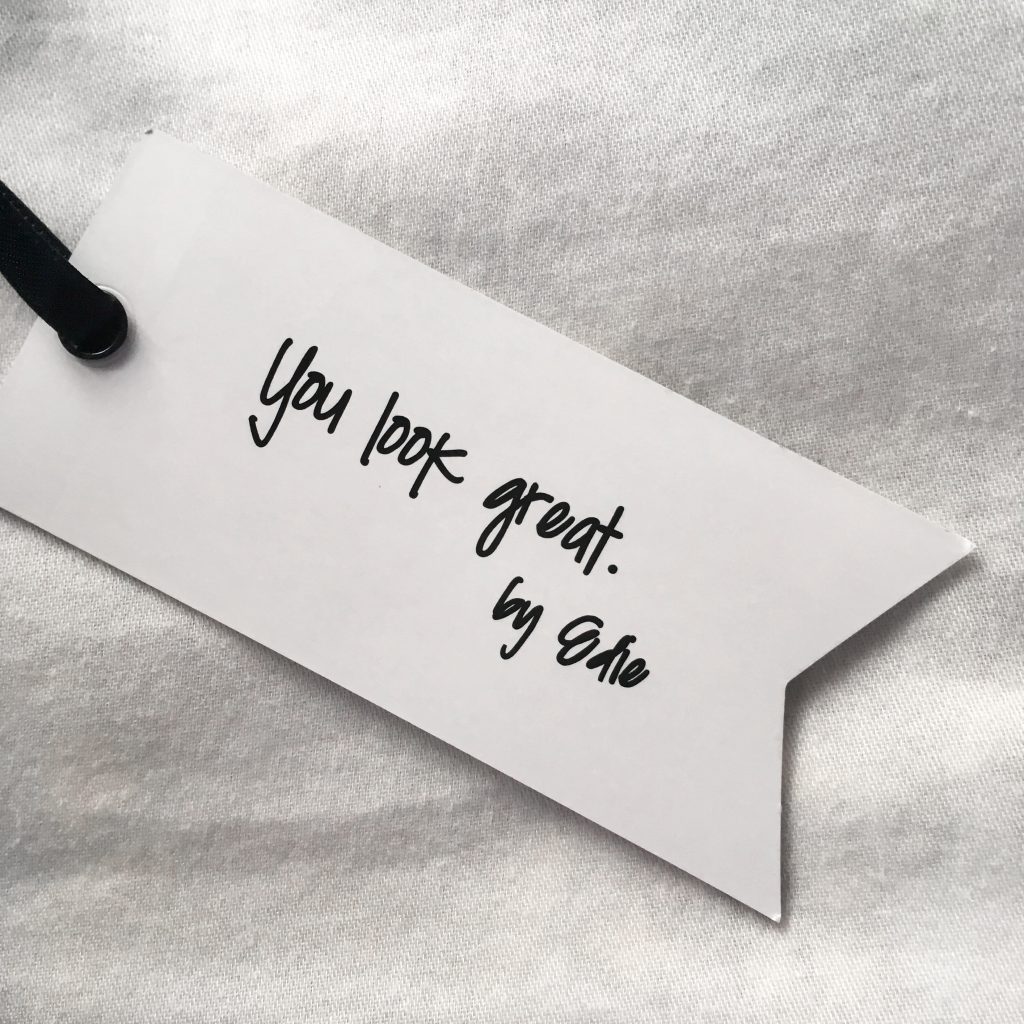 You look great.
by Edie